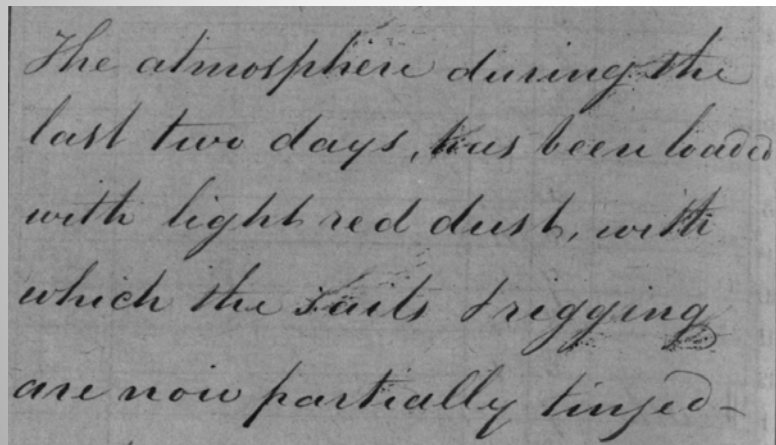 The atmosphere during the
last two days, has been loaded
with light red dust, with
which the sails & rigging
are now partially tinged-